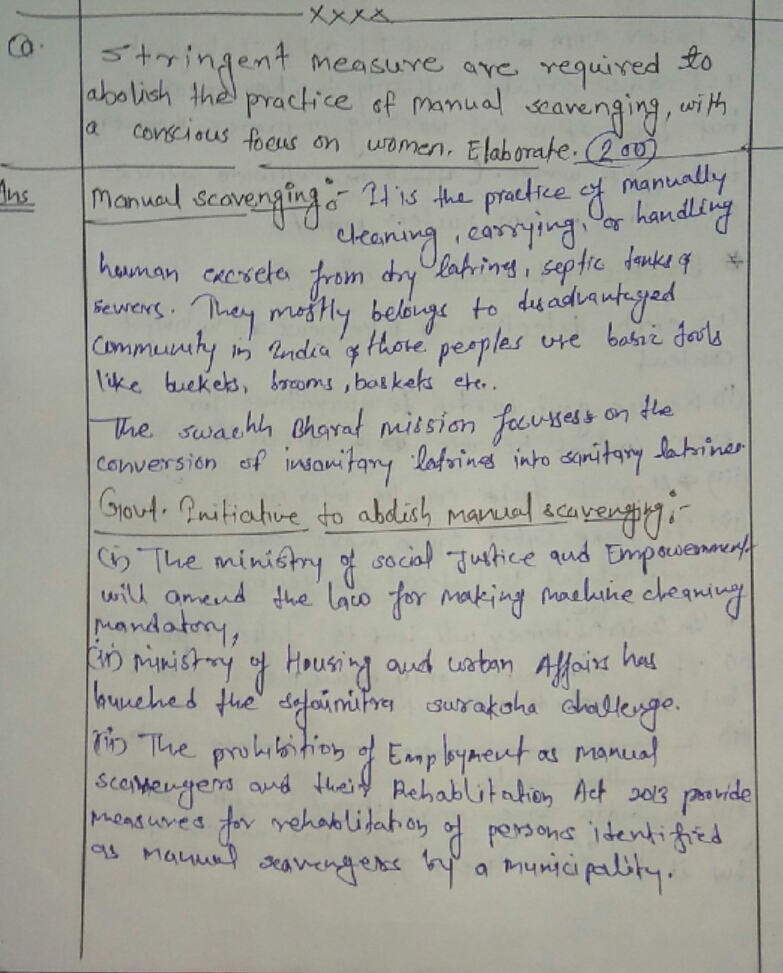 xxxx
Q. Stringent measure are required to
abolish the practice of manual scavenging, with
a conscious focus on women. Elaborate. (200)
Ans Manual scavenging :- It is the practice of manually
cleaning, carrying, or handling
human excreta from dry latrines, septic tanks &
sewers. They mostly belongs to disadvantaged
community in India & those peoples use basic tools
like buckets, brooms, baskets etc..
The swachh Bharat mission focusses on the
conversion of insanitary latrines into sanitary latrines
Govt. Initiative to abolish manual scavenging :-
(i) The ministry of social Justice and Empowerment
will amend the law for making machine cleaning
mandatory,
(ii) ministry of Housing and urban Affairs has
launched the safaimitra suraksha challenge.
(iii) The prohibition of Employment as manual
scavengers and their Rehablitation Act 2013 provide
measures for rehablitation of persons identified
as manual scavengers by a municipality.